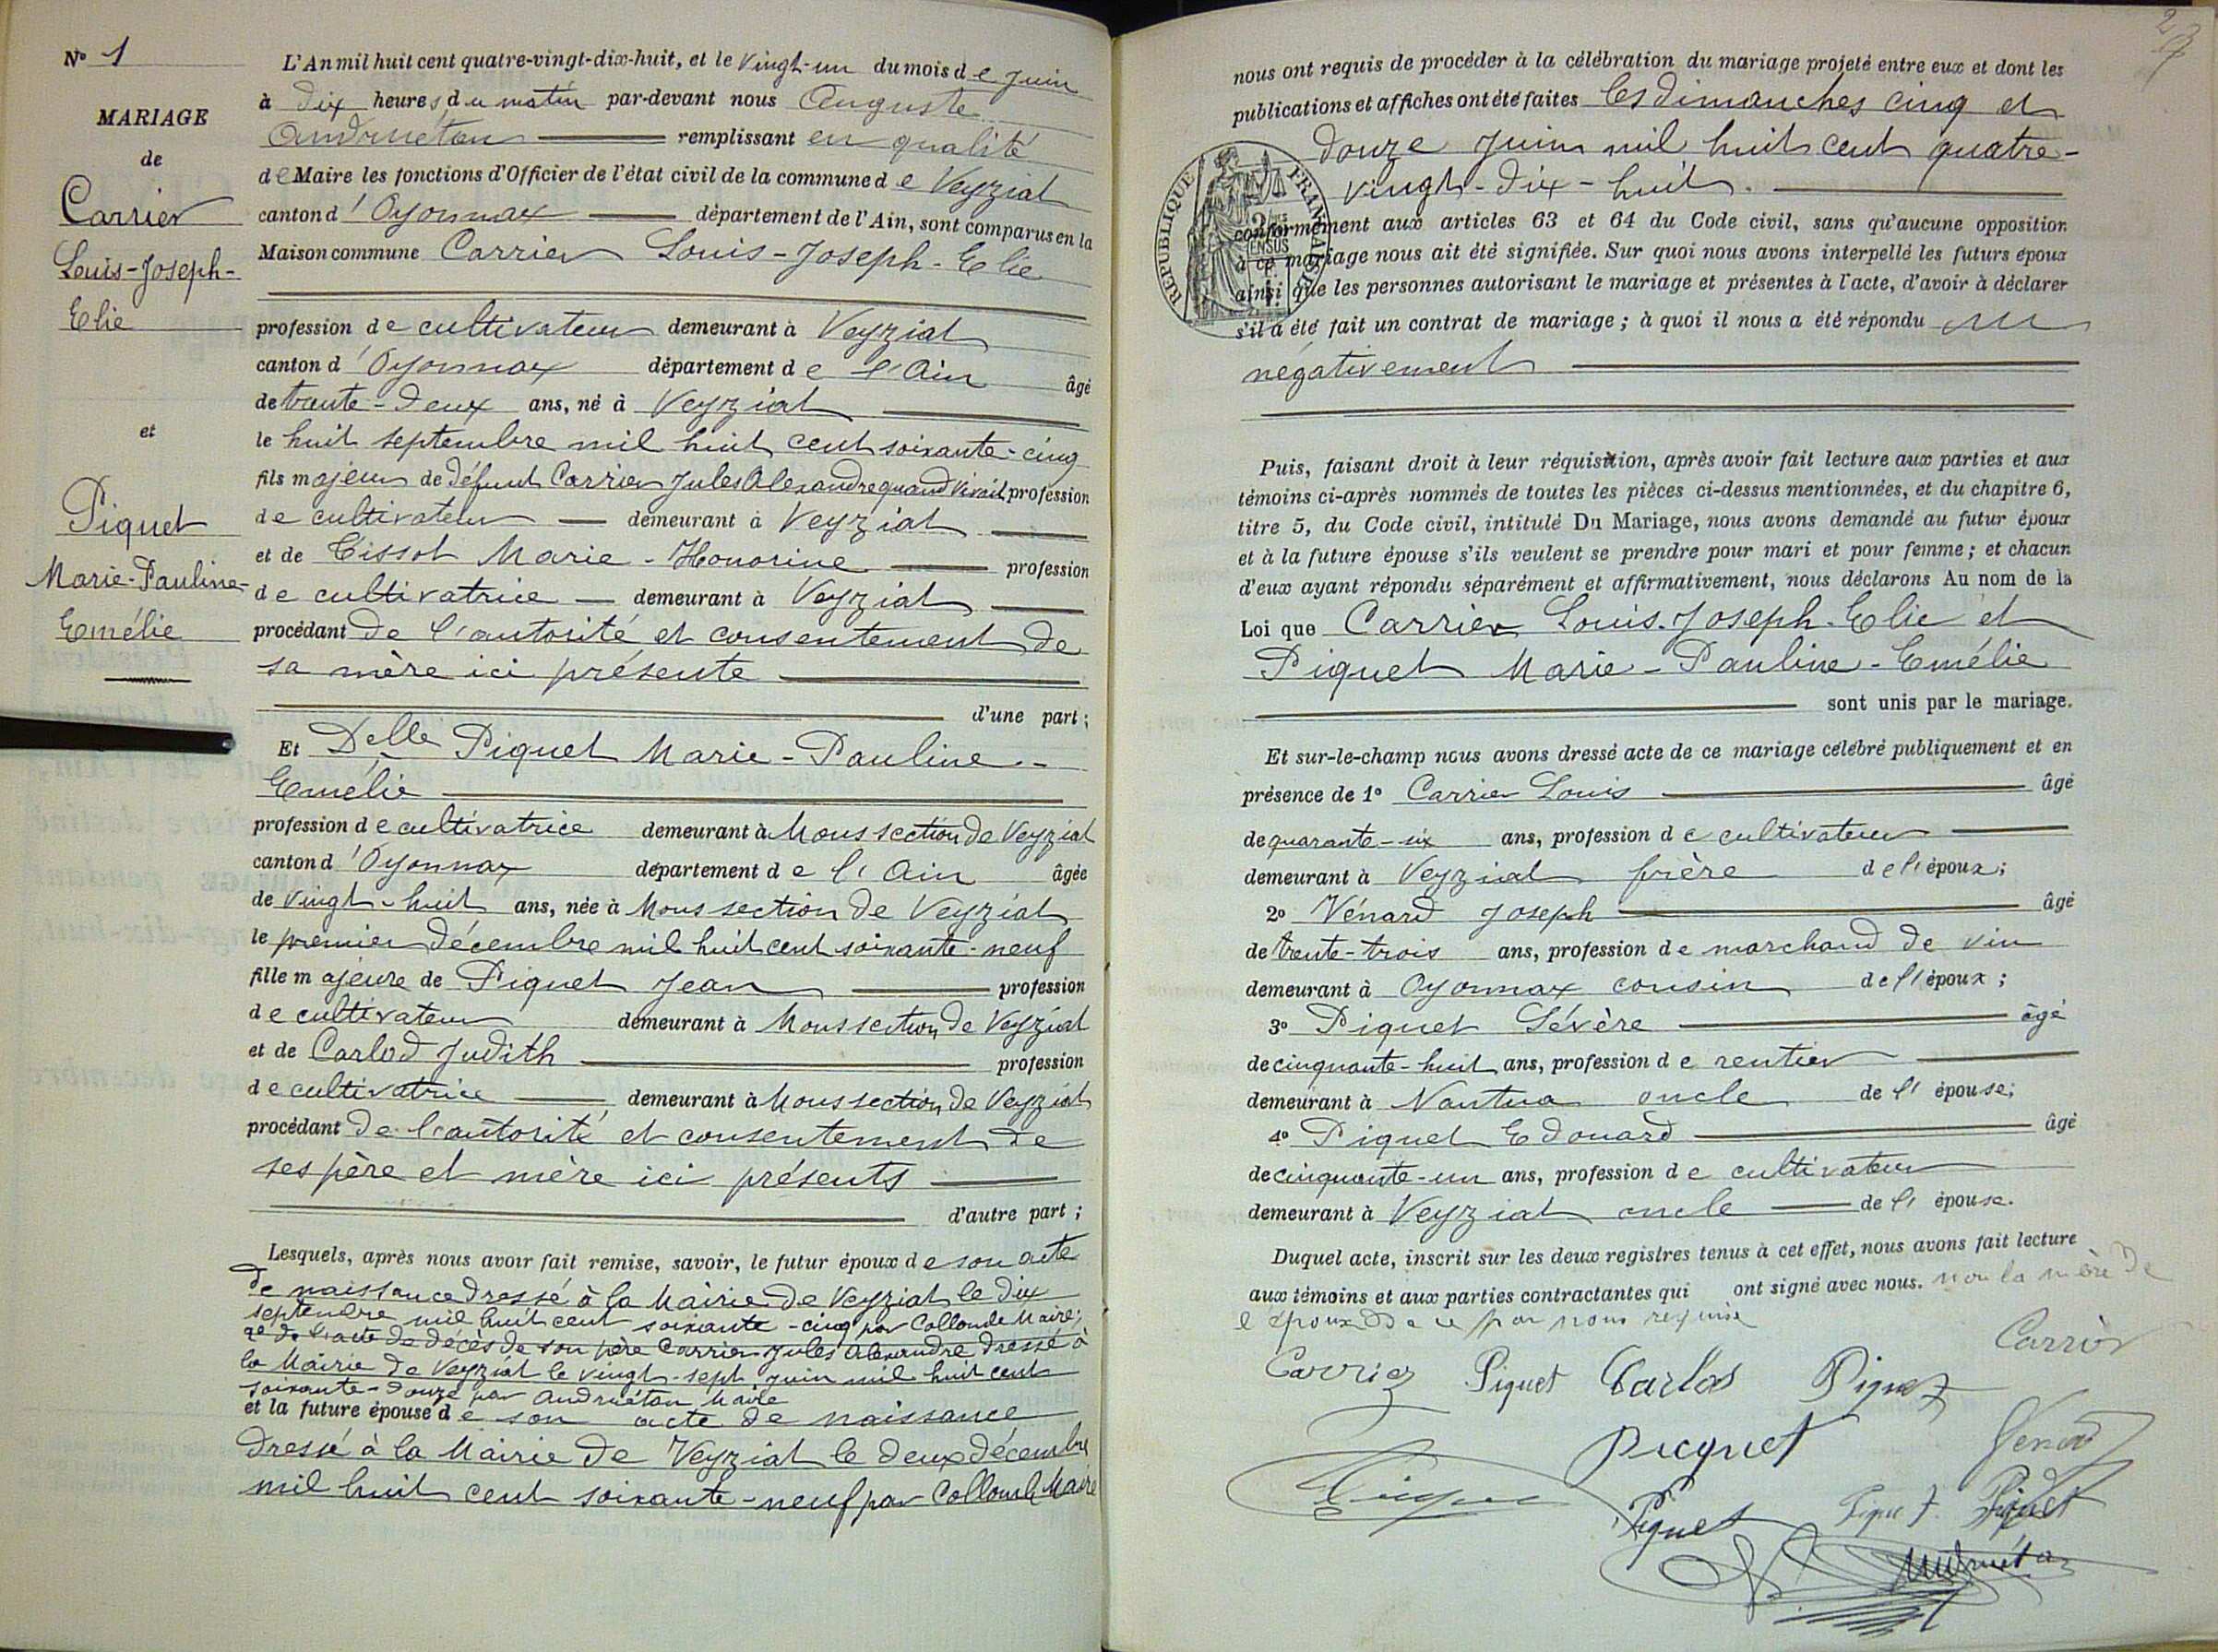 N° 1
MARIAGE
de
Carrier
Louis-Joseph-
Elie
et
Piquet
Marie-Pauline-
Emélie
L'An mil huit cent quatre-vingt-dix-huit, et le vingt-un du mois de Juin
à dix heures du matin par-devant nous Auguste
Andruétan remplissant en qualité
de Maire les fonctions d'Officier de l'état civil de la commune de Veyziat
canton d'Oyonnax département de l'Ain, sont comparus en la
Maison commune Carrier Louis-Joseph-Elie
profession de cultivateur demeurant à Veyziat
canton d'Oyonnax département de l'Ain âgé
de trente-deux ans, né à Veyziat
le huit septembre mil huit cent soixante-cinq
fils majeur de défunt Carrier Jules Alexandre quand vivait profession
de cultivateur demeurant à Veyziat
et de Tissot Marie-Honorine profession
de cultivatrice demeurant à Veyziat
procédant de l'autorité et consentement de
sa mère ici présente
d'une part;
Et Delle Piquet Marie-Pauline-
Emélie
profession de cultivatrice demeurant à Mons section de Veyziat
canton d'Oyonnax département de l'Ain âgée
de vingt-huit ans, née à Mons section de Veyziat
le premier décembre mil huit cent soixante-neuf
fille majeure de Piquet Jean profession
de cultivateur demeurant à Mons section de Veyziat
et de Carlod Judith profession
de cultivatrice demeurant à Mons section de Veyziat
procédant de l'autorité et consentement de
ses père et mère ici présents
d'autre part;
Lesquels, après nous avoir fait remise, savoir, le futur époux de son acte
de naissance dressé à la Mairie de Veyziat le dix
septembre mil huit cent soixante-cinq par Collomb Maire;
2° de l'acte de décès de son père Carrier Jules Alexandre dressé à
la Mairie de Veyziat le vingt-sept juin mil huit cent
soixante-douze par Andruétan Maire
et la future épouse de son acte de naissance
dressé à la Mairie de Veyziat le deux décembre
mil huit cent soixante-neuf par Collomb Maire
nous ont requis de procéder à la célébration du mariage projeté entre eux et dont les
publications et affiches ont été faites les dimanches cinq et
douze Juin mil huit cent quatre-
vingt-dix-huit.
RÉPUBLIQUE FRANÇAISE
conformément aux articles 63 et 64 du Code civil, sans qu'aucune opposition
à ce mariage nous ait été signifiée. Sur quoi nous avons interpellé les futurs époux
ainsi que les personnes autorisant le mariage et présentes à l'acte, d'avoir à déclarer
s'il a été fait un contrat de mariage; à quoi il nous a été répondu
négativement
Puis, faisant droit à leur réquisition, après avoir fait lecture aux parties et aux
témoins ci-après nommés de toutes les pièces ci-dessus mentionnées, et du chapitre 6,
titre 5, du Code civil, intitulé Du Mariage, nous avons demandé au futur époux
et à la future épouse s'ils veulent se prendre pour mari et pour femme; et chacun
d'eux ayant répondu séparément et affirmativement, nous déclarons Au nom de la
Loi que Carrier Louis-Joseph-Elie et
Piquet Marie-Pauline-Emélie
sont unis par le mariage.
Et sur-le-champ nous avons dressé acte de ce mariage célébré publiquement et en
présence de 1° Carrier Louis âgé
de quarante-six ans, profession de cultivateur
demeurant à Veyziat frère de l'époux;
2° Vénard Joseph âgé
de trente-trois ans, profession de marchand de vin
demeurant à Oyonnax cousin de l'époux;
3° Piquet Sévère âgé
de cinquante-huit ans, profession de rentier
demeurant à Nantua oncle de l'épouse;
4° Piquet Edouard âgé
de cinquante-un ans, profession de cultivateur
demeurant à Veyziat oncle de l'épouse.
Duquel acte, inscrit sur les deux registres tenus à cet effet, nous avons fait lecture
aux témoins et aux parties contractantes qui ont signé avec nous. non la mère de
l'époux de ce par nous requise
Carrier
Carrier Piquet Carlod Piquet
Picquet Venard
Piquet Piquet Piquet
Andruétan